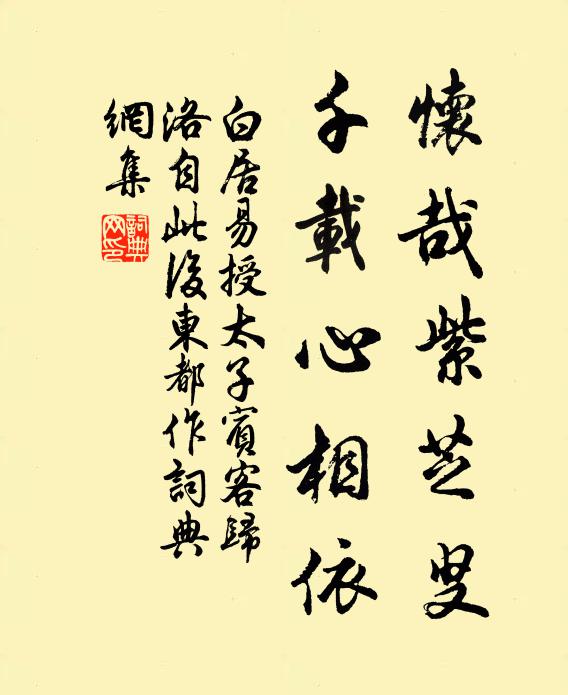 懷哉紫芝叟
千載心相依
白居易授太子賓客歸
洛自此後東都作詞典
網集
詞典網印